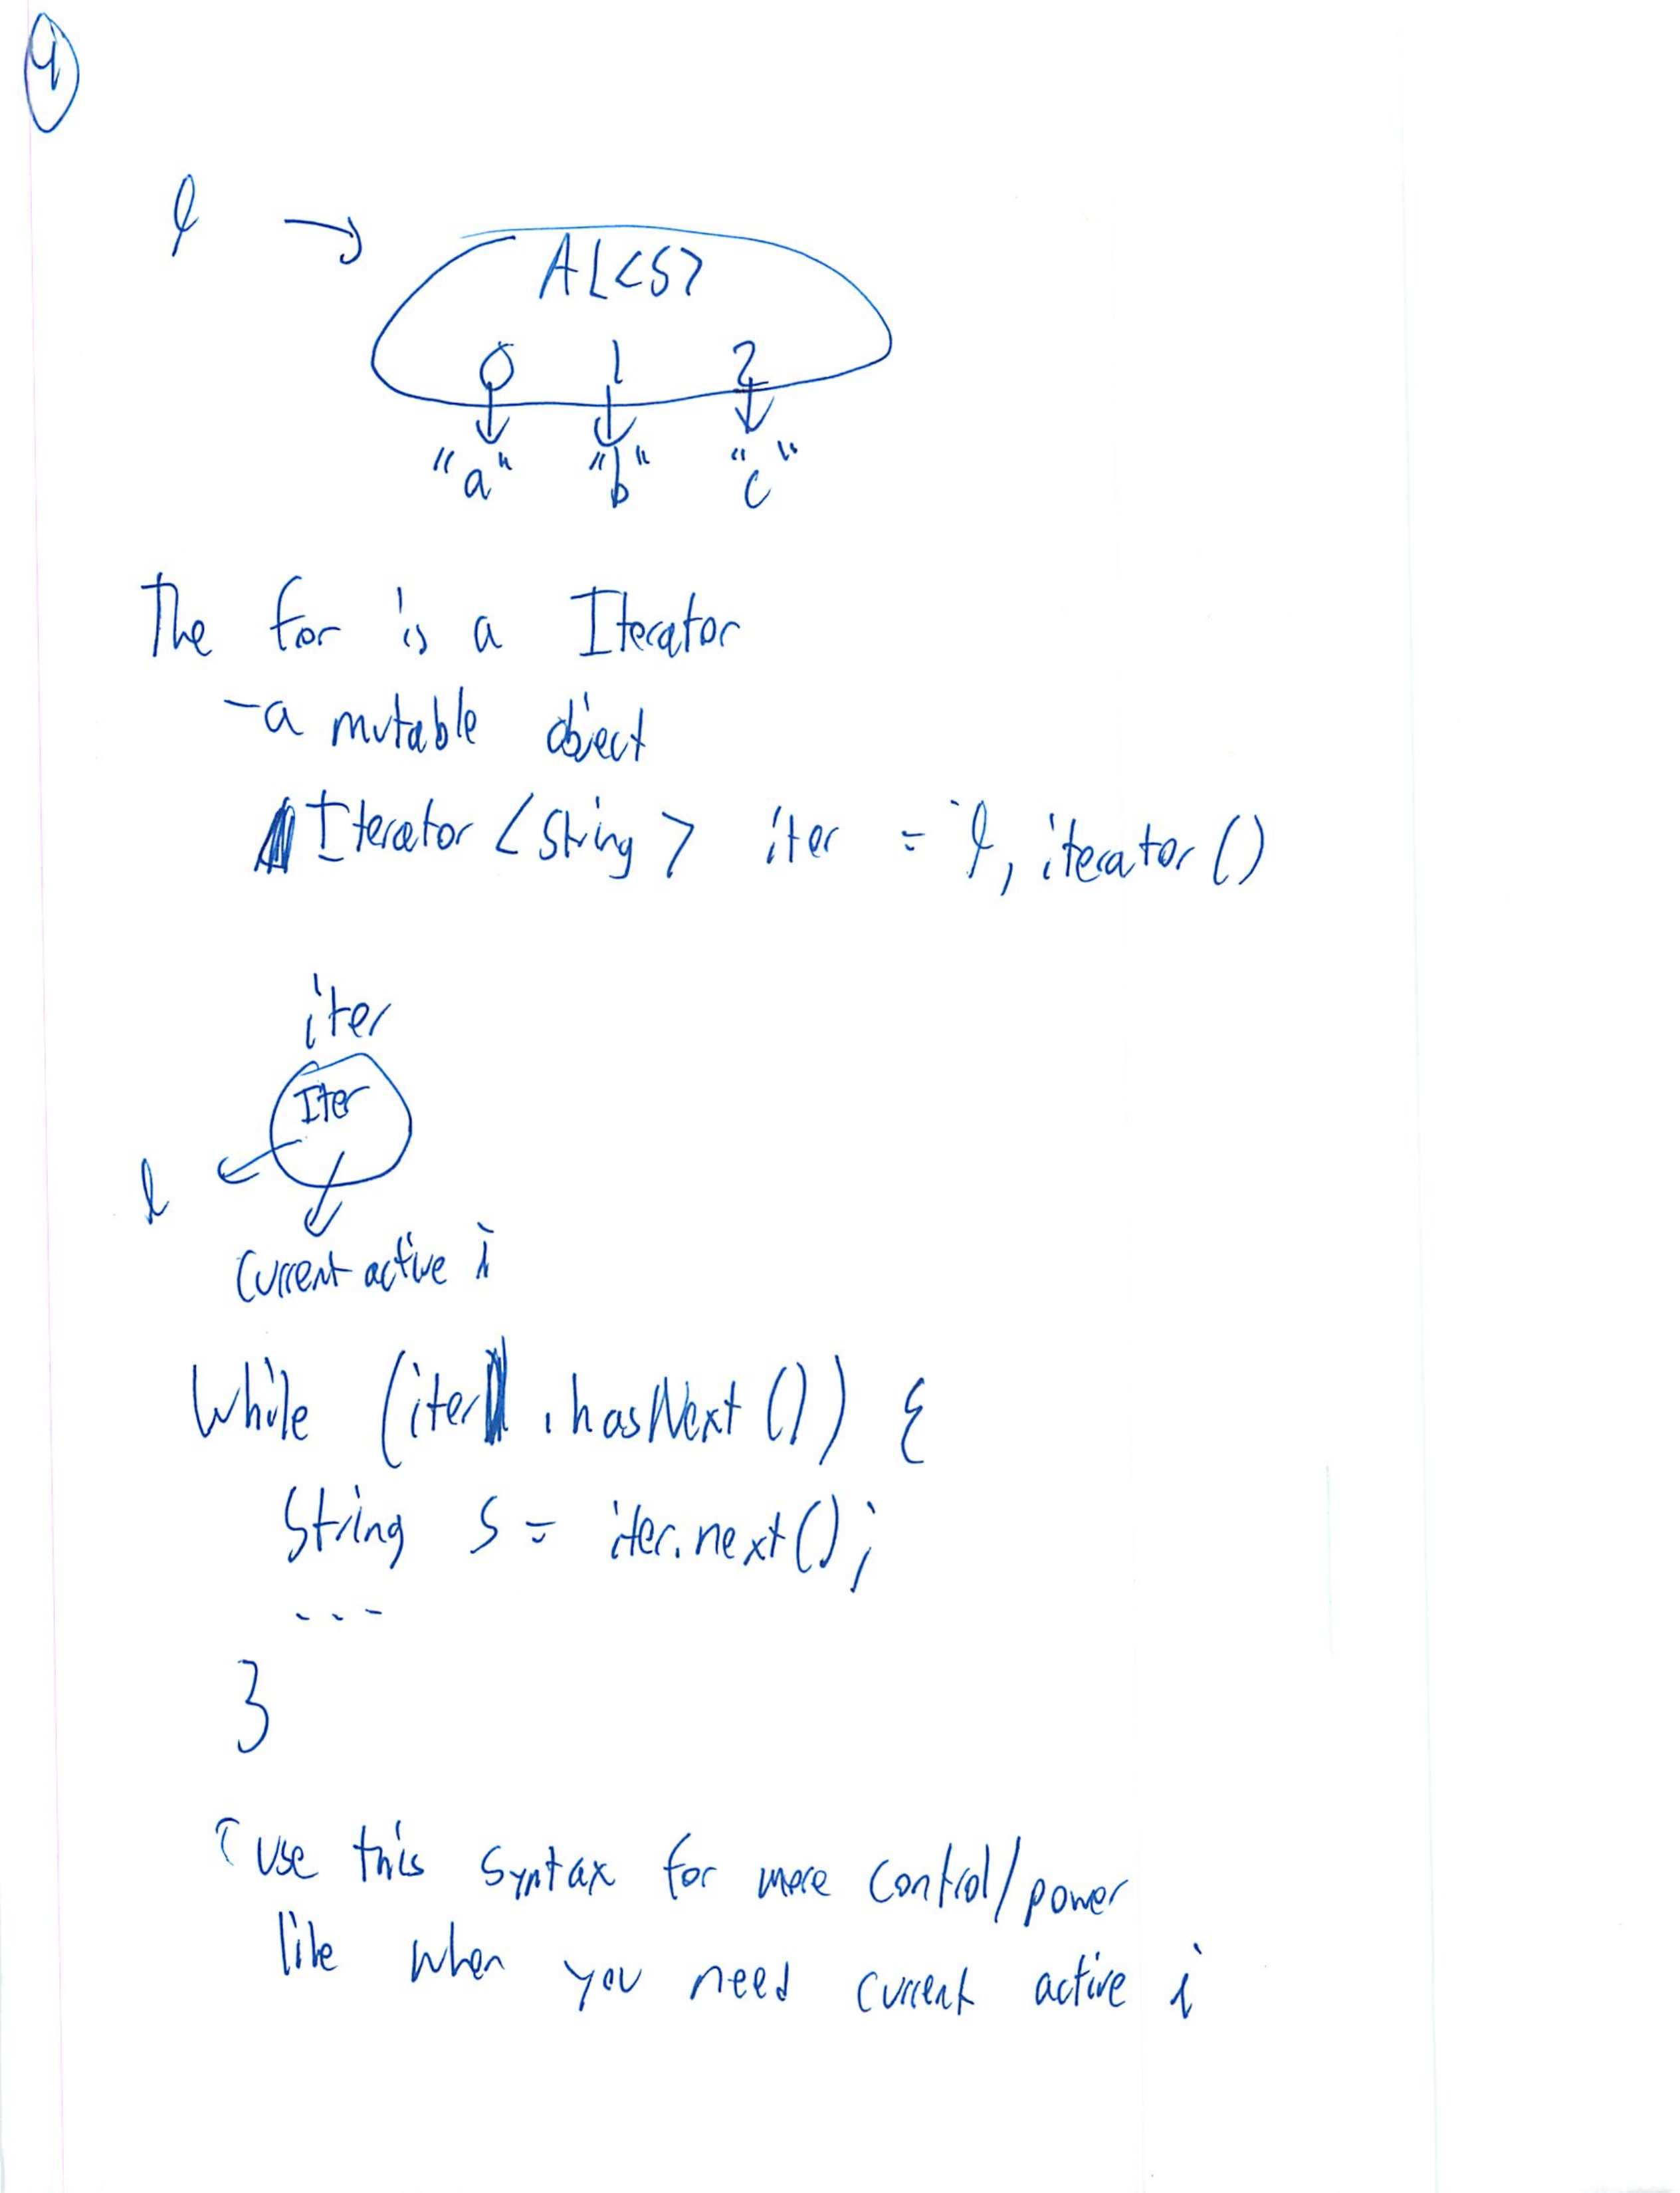 4
l →
AL<S>
0 1 2
"a" "b" "c"
The for is a Iterator
- a mutable object
Iterator <String> iter = l.iterator()
iter
Iter
l
current active i
While (iter.hasNext()) {
String s = iter.next();
...
}
↑ Use this syntax for more control/power
like when you need current active i